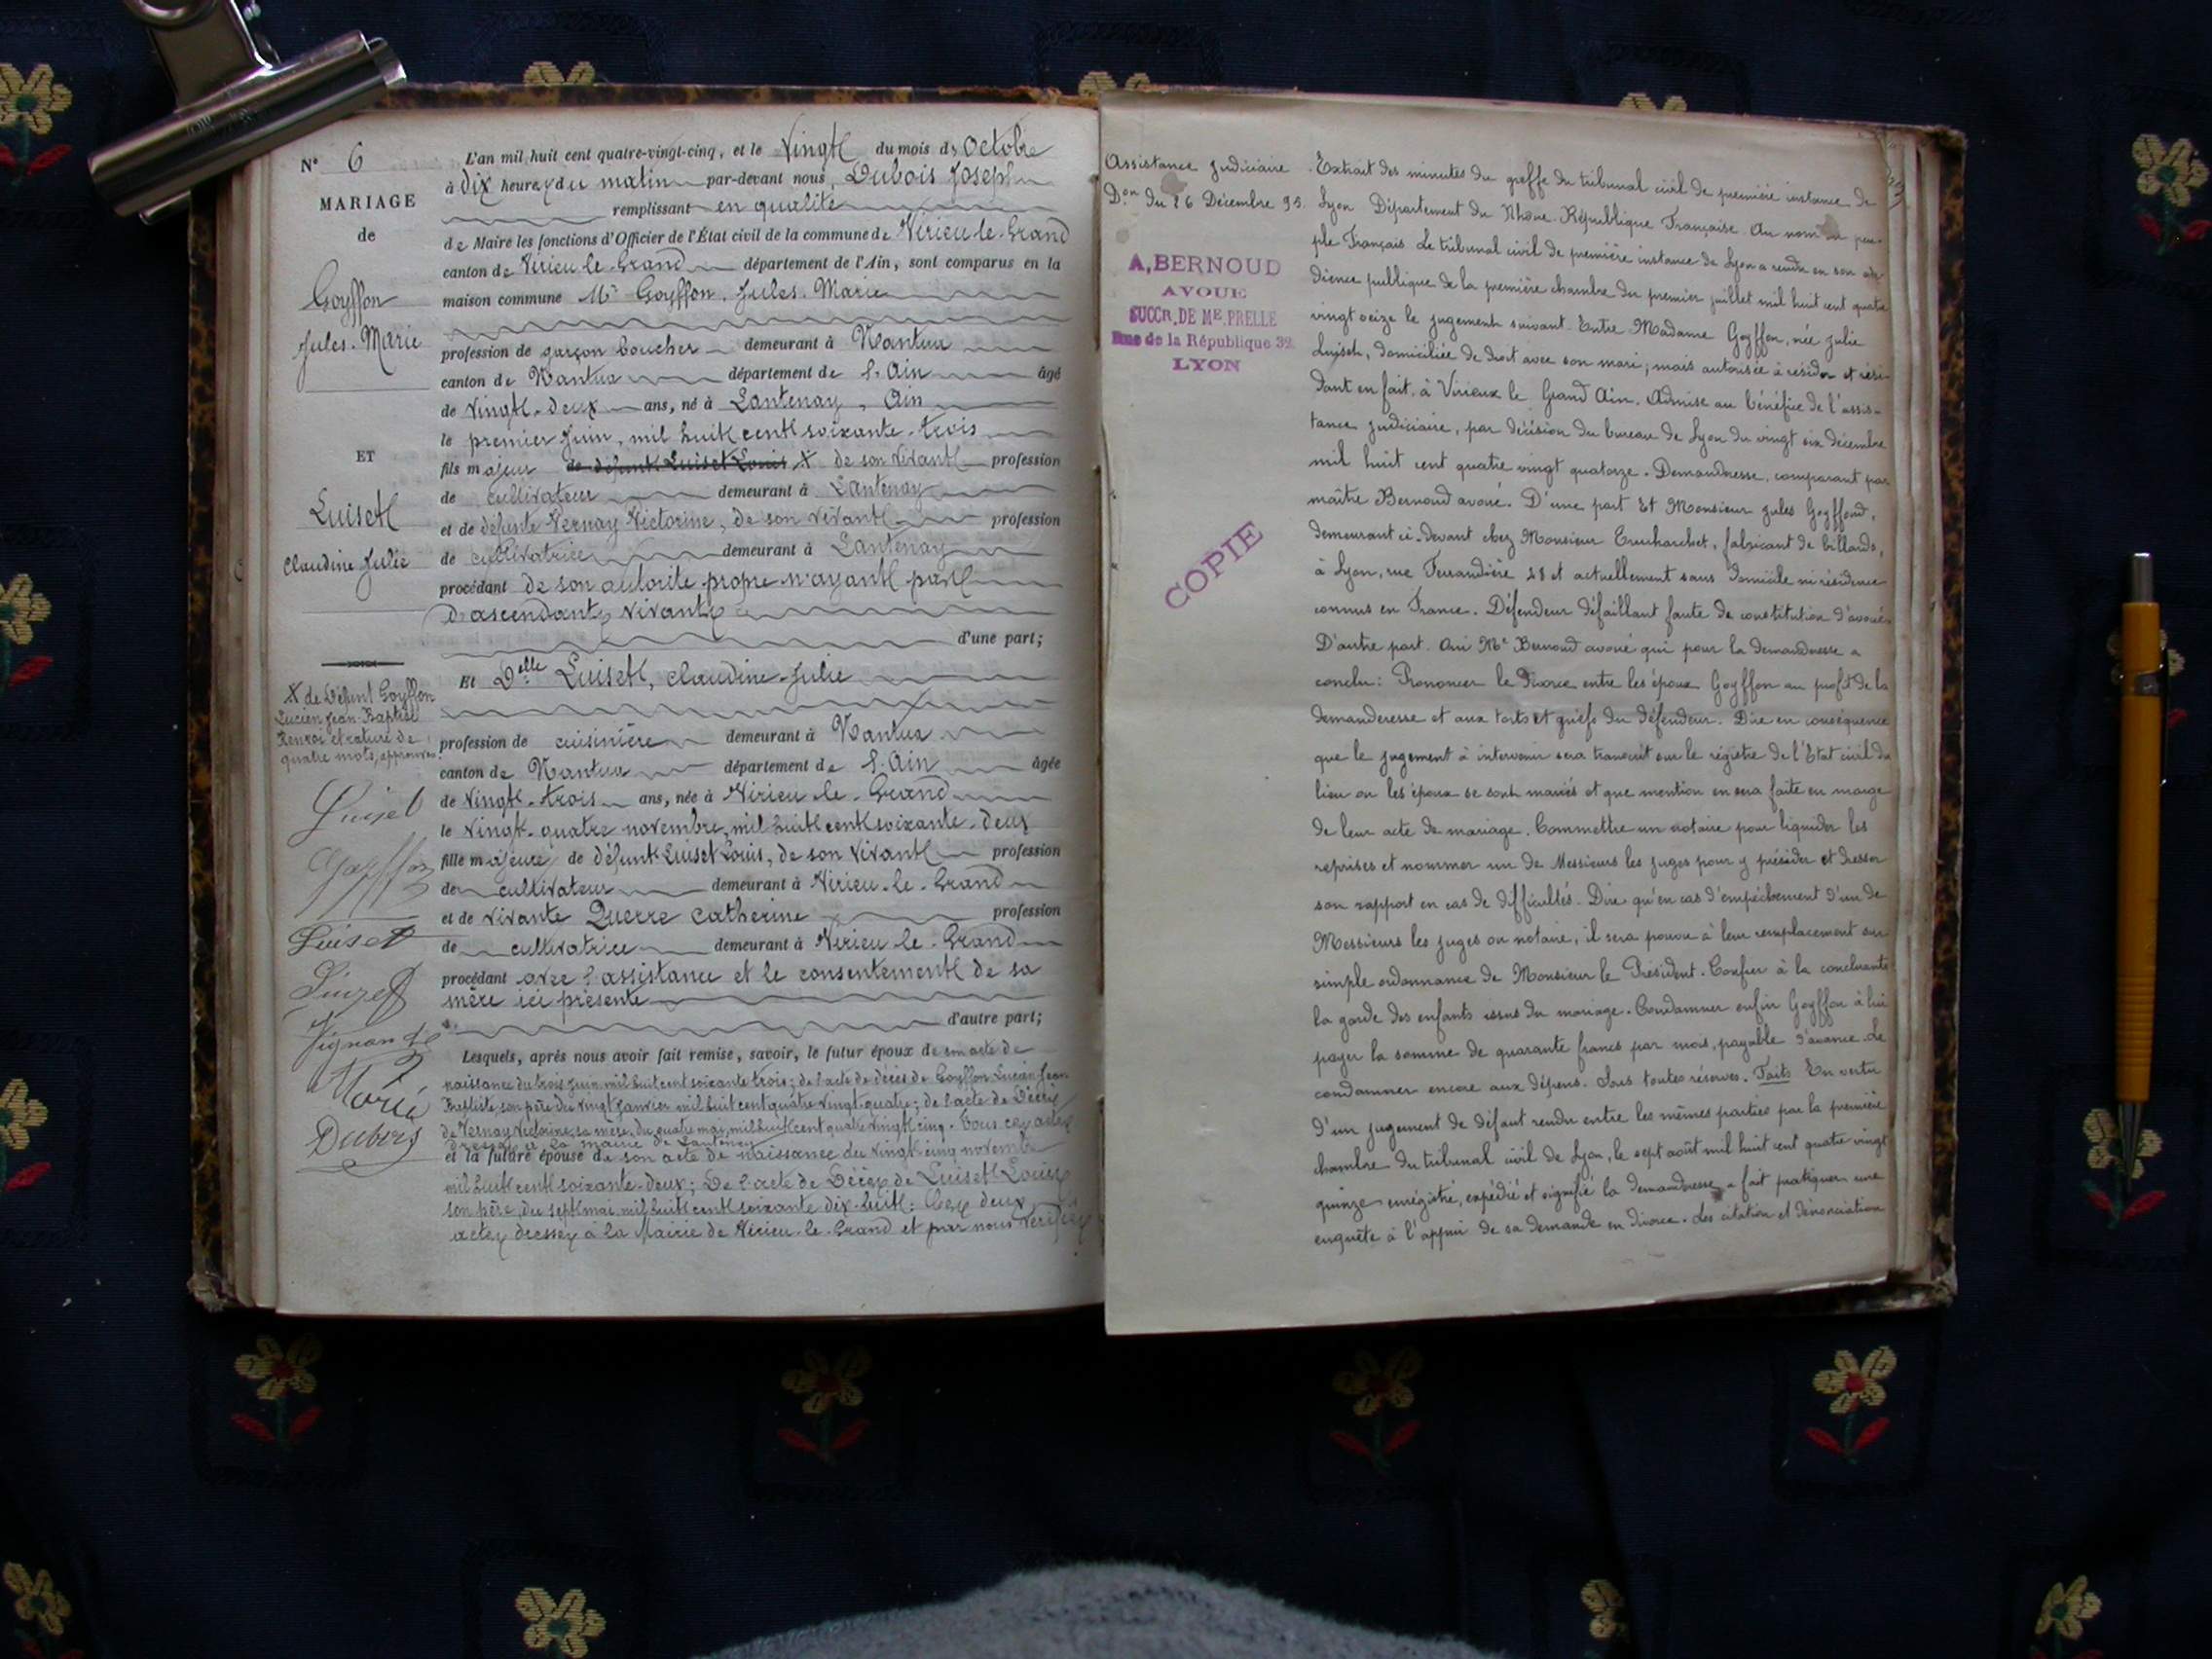 N° 6
MARIAGE
de
Goyffon
Jules-Marie
ET
Luiset
Claudine Julie
X de défunt Goyffon
Lucien Jean-Baptiste
Renvoi et rature de
quatre mots, approuvés.
Luiset
Goyffon
Luiset
Luizet
Marié
Dubois
L'an mil huit cent quatre-vingt-cinq, et le Vingt du mois de Octobre
à dix heures du matin par-devant nous, Dubois Joseph
remplissant en qualité
de Maire les fonctions d'Officier de l'État civil de la commune de Virieu-le-Grand
canton de Virieu-le-Grand département de l'Ain, sont comparus en la
maison commune Mr Goyffon, Jules-Marie
profession de garçon boucher demeurant à Nantua
canton de Nantua département de l'Ain âgé
de Vingt-deux ans, né à Lantenay, Ain
le premier Juin, mil huit cent soixante-trois
fils majeur de défunt Luiset Louis X de son vivant profession
de cultivateur demeurant à Lantenay
et de défunte Vernay Victorine, de son vivant profession
de cultivatrice demeurant à Lantenay
procédant de son autorité propre n'ayant pas
d'ascendants vivants
d'une part;
Et Delle Luiset, Claudine-Julie
profession de cuisinière demeurant à Nantua
canton de Nantua département de l'Ain âgée
de Vingt-trois ans, née à Virieu-le-Grand
le vingt-quatre novembre, mil huit cent soixante-deux
fille majeure de défunt Luiset Louis, de son vivant profession
de cultivateur demeurant à Virieu-le-Grand
et de vivante Querre Catherine profession
de cultivatrice demeurant à Virieu-le-Grand
procédant avec l'assistance et le consentement de sa
mère ici présente
d'autre part;
Lesquels, après nous avoir fait remise, savoir, le futur époux de son acte de
naissance du trois juin mil huit cent soixante trois; de l'acte de décès de Goyffon Lucien Jean
Baptiste, son père du vingt janvier mil huit cent quatre vingt-quatre; de l'acte de Décès
de Vernay Victorine, sa mère, du quatre mai, mil huit cent quatre vingt cinq. Tous ces actes
dressés à la mairie de Lantenay
et la future épouse de son acte de naissance du vingt cinq novembre
mil huit cent soixante-deux; De l'acte de Décès de Luiset Louis
son père, du sept mai, mil huit cent soixante dix-huit; Ces deux
actes dressés à la Mairie de Virieu-le-Grand et par nous vérifiés
Assistance Judiciaire
Don du 26 Décembre 95.
A. BERNOUD
AVOUÉ
SUCCR. DE ME. PRELLE
Rue de la République 32
LYON
COPIE
Extrait des minutes du greffe du tribunal civil de première instance de
Lyon Département du Rhône. République Française. Au nom du peu-
ple Français. Le tribunal civil de première instance de Lyon a rendu en son au-
dience publique de la première chambre du premier juillet mil huit cent quatre
vingt seize le jugement suivant. Entre Madame Goyffon, née Julie
Luiset, domiciliée de droit avec son mari; mais autorisée à résider et rési-
dant en fait à Virieux le Grand Ain. Admise au bénéfice de l'assis-
tance judiciaire, par décision du bureau de Lyon du vingt six décembre
mil huit cent quatre vingt quatorze. Demanderesse, comparant par
maître Bernoud avoué. D'une part Et Monsieur Jules Goyffond,
demeurant ci-devant chez Monsieur, fabricant de billards,
à Lyon, rue Ferrandière 28 et actuellement sans domicile ni résidence
connus en France. Défendeur défaillant faute de constitution d'avoué.
D'autre part. Oui Me Bernoud avoué qui pour la demanderesse a
conclu: Prononcer le Divorce entre les époux Goyffon au profit de la
demanderesse et aux torts et griefs du défendeur. Dire en conséquence
que le jugement à intervenir sera transcrit sur le régistre de l'Etat civil du
lieu ou les époux se sont mariés et que mention en sera faite en marge
de leur acte de mariage. Commettre un notaire pour liquider les
reprises et nommer un de Messieurs les juges pour y présider et dresser
son rapport en cas de difficultés. Dire qu'en cas d'empêchement d'un de
Messieurs les juges ou notaire, il sera pourvu à leur remplacement sur
simple ordonnance de Monsieur le Président. Confier à la concluante
la garde des enfants issus du mariage. Condamner enfin Goyffon à lui
payer la somme de quarante francs par mois, payable d'avance. Le
condamner encore aux dépens. Sous toutes réserves. Faits En vertu
d'un jugement de défaut rendu entre les mêmes parties par la première
chambre du tribunal civil de Lyon, le sept août mil huit cent quatre vingt
quinze enrégistré, expédié et signifié la demanderesse a fait pratiquer une
enquête à l'appui de sa demande en divorce. Les citation et dénonciation